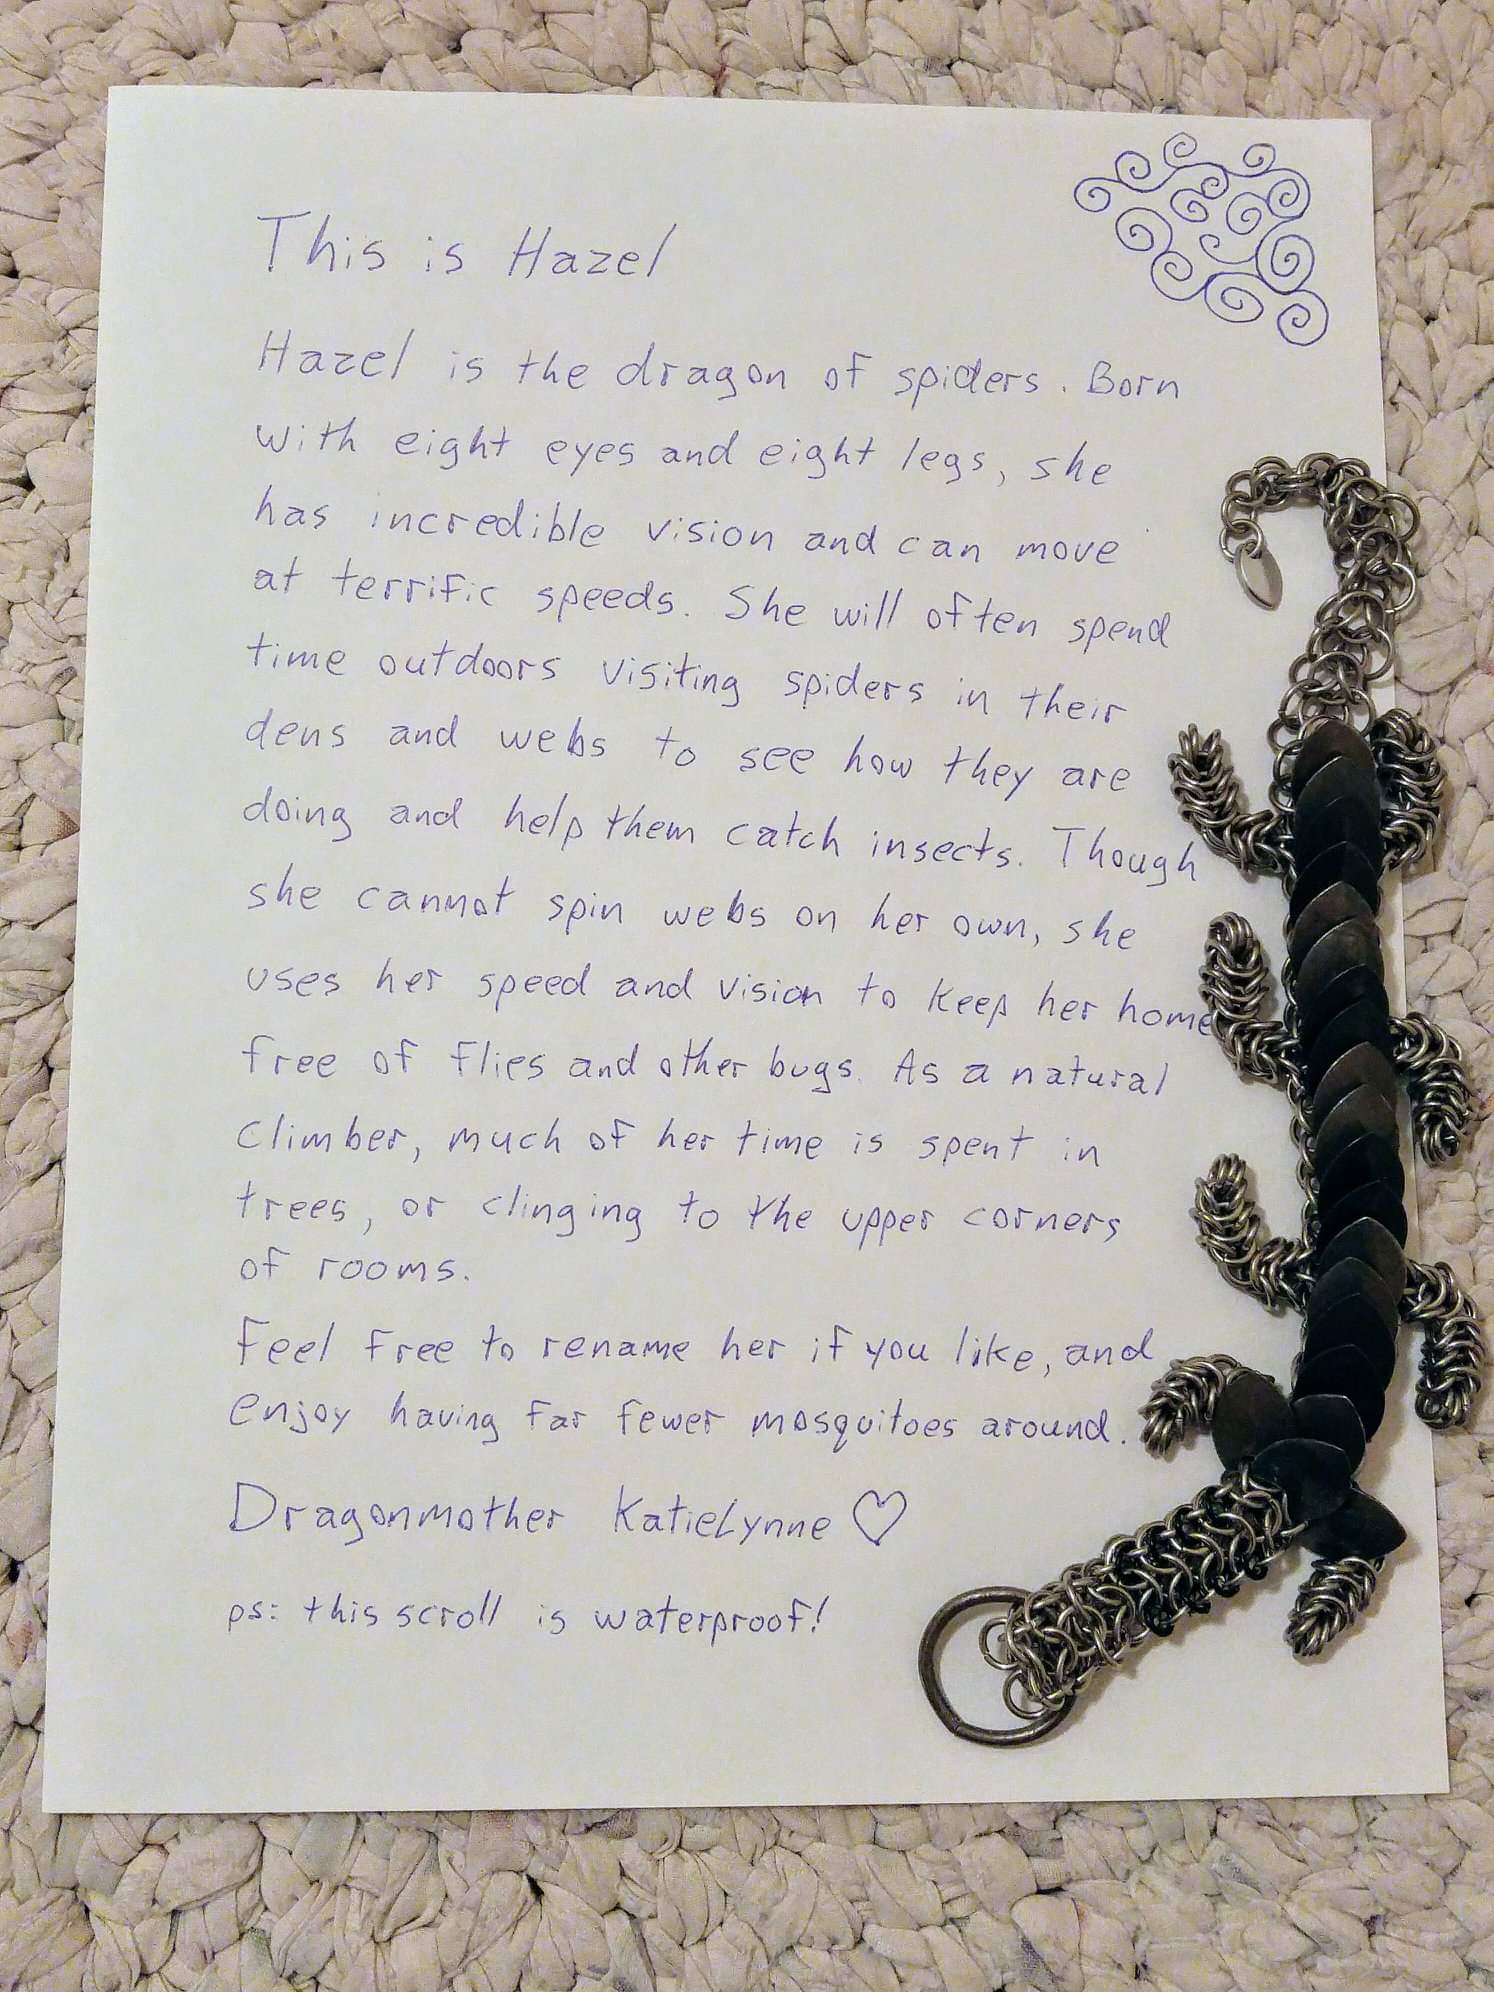 This is Hazel
Hazel is the dragon of spiders. Born
with eight eyes and eight legs, she
has incredible vision and can move
at terrific speeds. She will often spend
time outdoors visiting spiders in their
dens and webs to see how they are
doing and help them catch insects. Though
she cannot spin webs on her own, she
uses her speed and vision to keep her home
free of flies and other bugs. As a natural
climber, much of her time is spent in
trees, or clinging to the upper corners
of rooms.
Feel free to rename her if you like, and
enjoy having far fewer mosquitoes around.
Dragonmother KatieLynne ♡
ps: this scroll is waterproof!